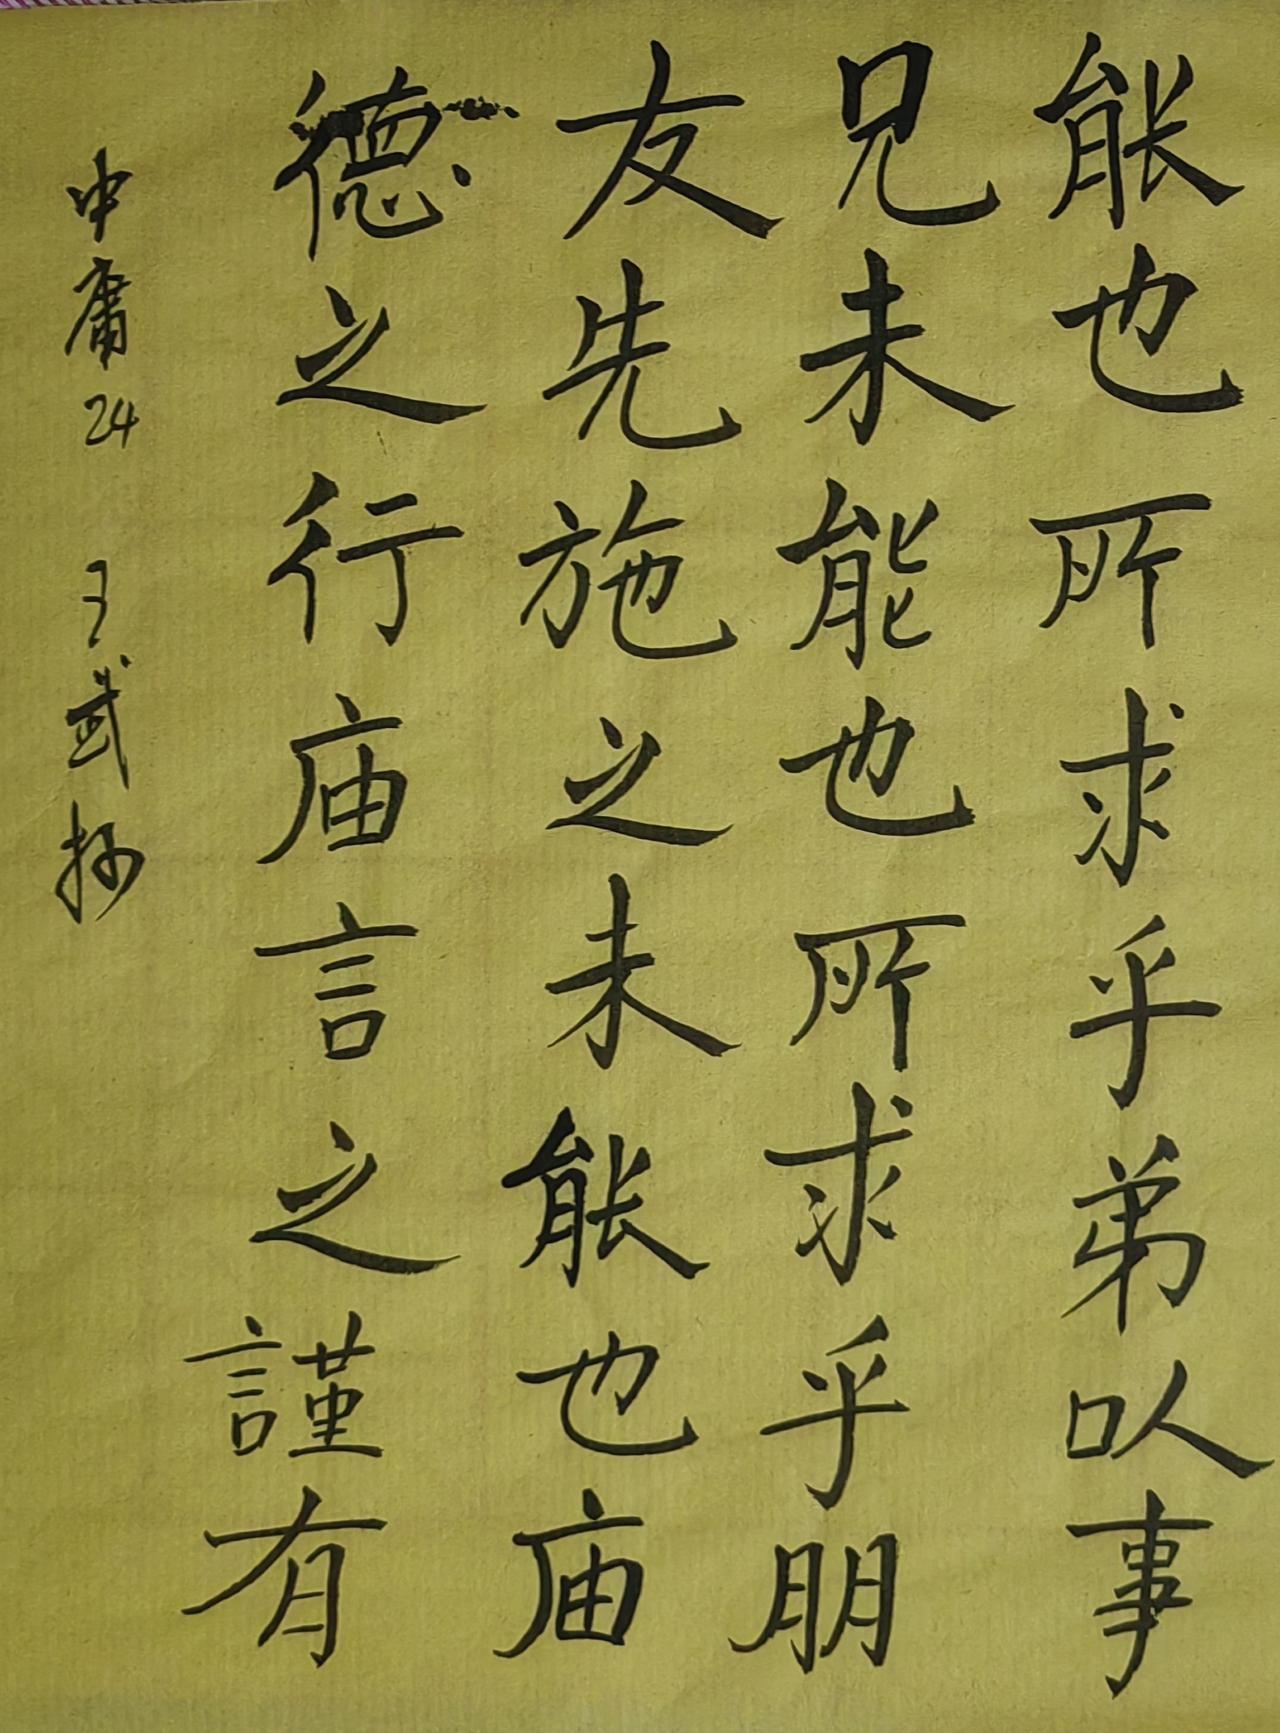 能也所求乎弟以事
兄未能也所求乎朋
友先施之未能也庙
德之行庙言之謹有
中庸24 王武抄